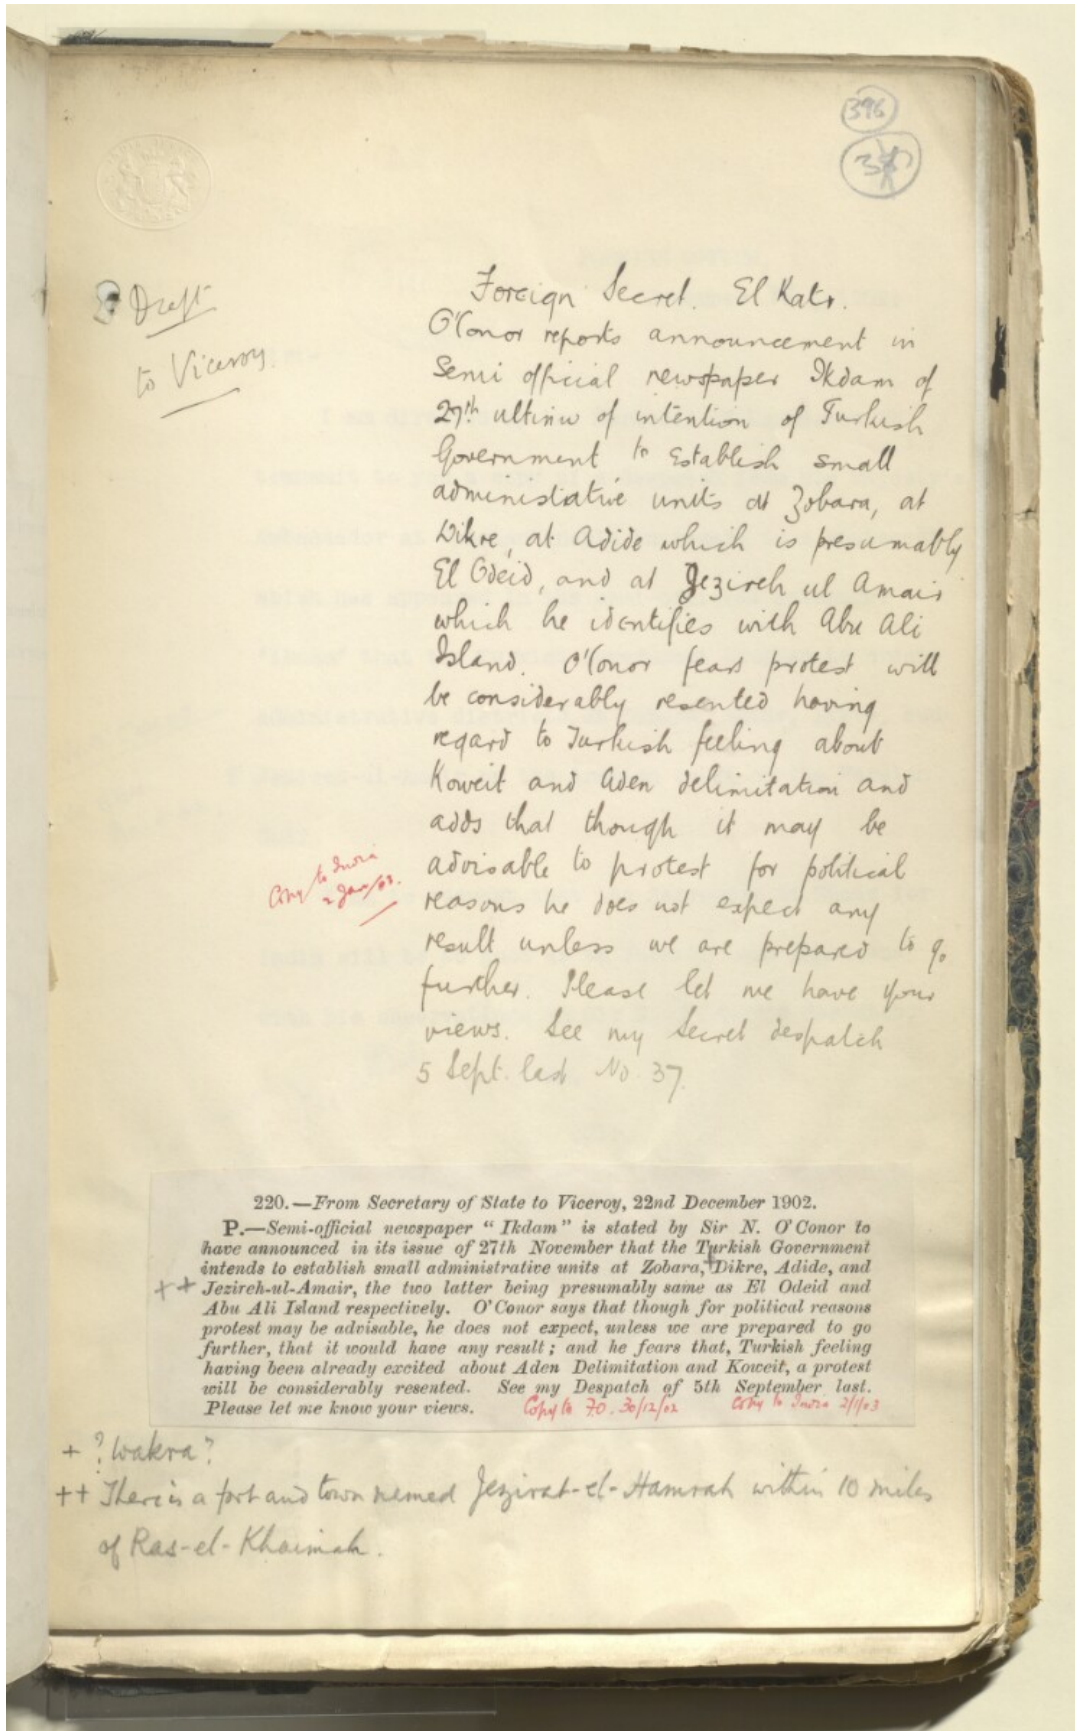 396
Draft
to Viceroy.
Foreign Secret. El Katr.
O'Conor reports announcement in
Semi official newspaper Ikdam of
27th ultimo of intention of Turkish
Government to establish small
administrative units at Zobara, at
Dikre, at Adide which is presumably
El Odeid, and at Jezireh ul Amair
which he identifies with Abu Ali
Island. O'Conor fears protest will
be considerably resented having
regard to Turkish feeling about
Koweit and Aden delimitation and
adds that though it may be
advisable to protest for political
reasons he does not expect any
result unless we are prepared to go
further. Please let me have your
views. See my Secret despatch
5 Sept. last No. 37.
Copy to India
2 Jan/03.
220.—From Secretary of State to Viceroy, 22nd December 1902.
P.—Semi-official newspaper "Ikdam" is stated by Sir N. O'Conor to
have announced in its issue of 27th November that the Turkish Government
intends to establish small administrative units at Zobara, + Dikre, Adide, and
++ Jezireh-ul-Amair, the two latter being presumably same as El Odeid and
Abu Ali Island respectively. O'Conor says that though for political reasons
protest may be advisable, he does not expect, unless we are prepared to go
further, that it would have any result; and he fears that, Turkish feeling
having been already excited about Aden Delimitation and Koweit, a protest
will be considerably resented. See my Despatch of 5th September last.
Please let me know your views. Copy to F.O. 30/12/02 Copy to India 2/1/03
+ ? Wakra?
++ There is a fort and town named Jezirat-el-Hamrah within 10 miles
of Ras-el-Khaimah.